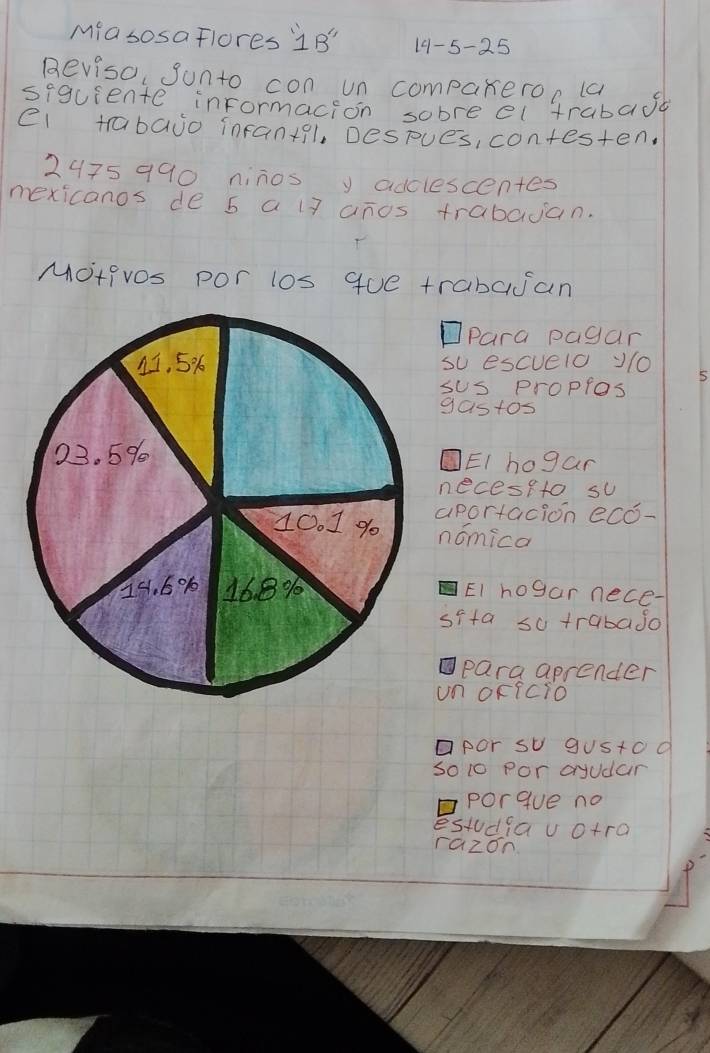 Miasosa Flores "1B" 14-5-25
Revisa, Junto con un compañero, la
siguiente información sobre el trabajo
el trabajo infantil. Despues, contesten.
2475 990 niños y adolescentes
mexicanos de 5 a 17 años trabajan.
Motivos por los que trabajan
11.5%
23.5%
10.1%
14.6% 16.8%
Para pagar
su escuela y/o
sus propios
gastos
El hogar
necesita su
aportación ecó-
nómica
El hogar nece-
sita su trabajo
para aprender
un oficio
por su gusto o
solo por ayudar
porque no
estudia u otra
razón